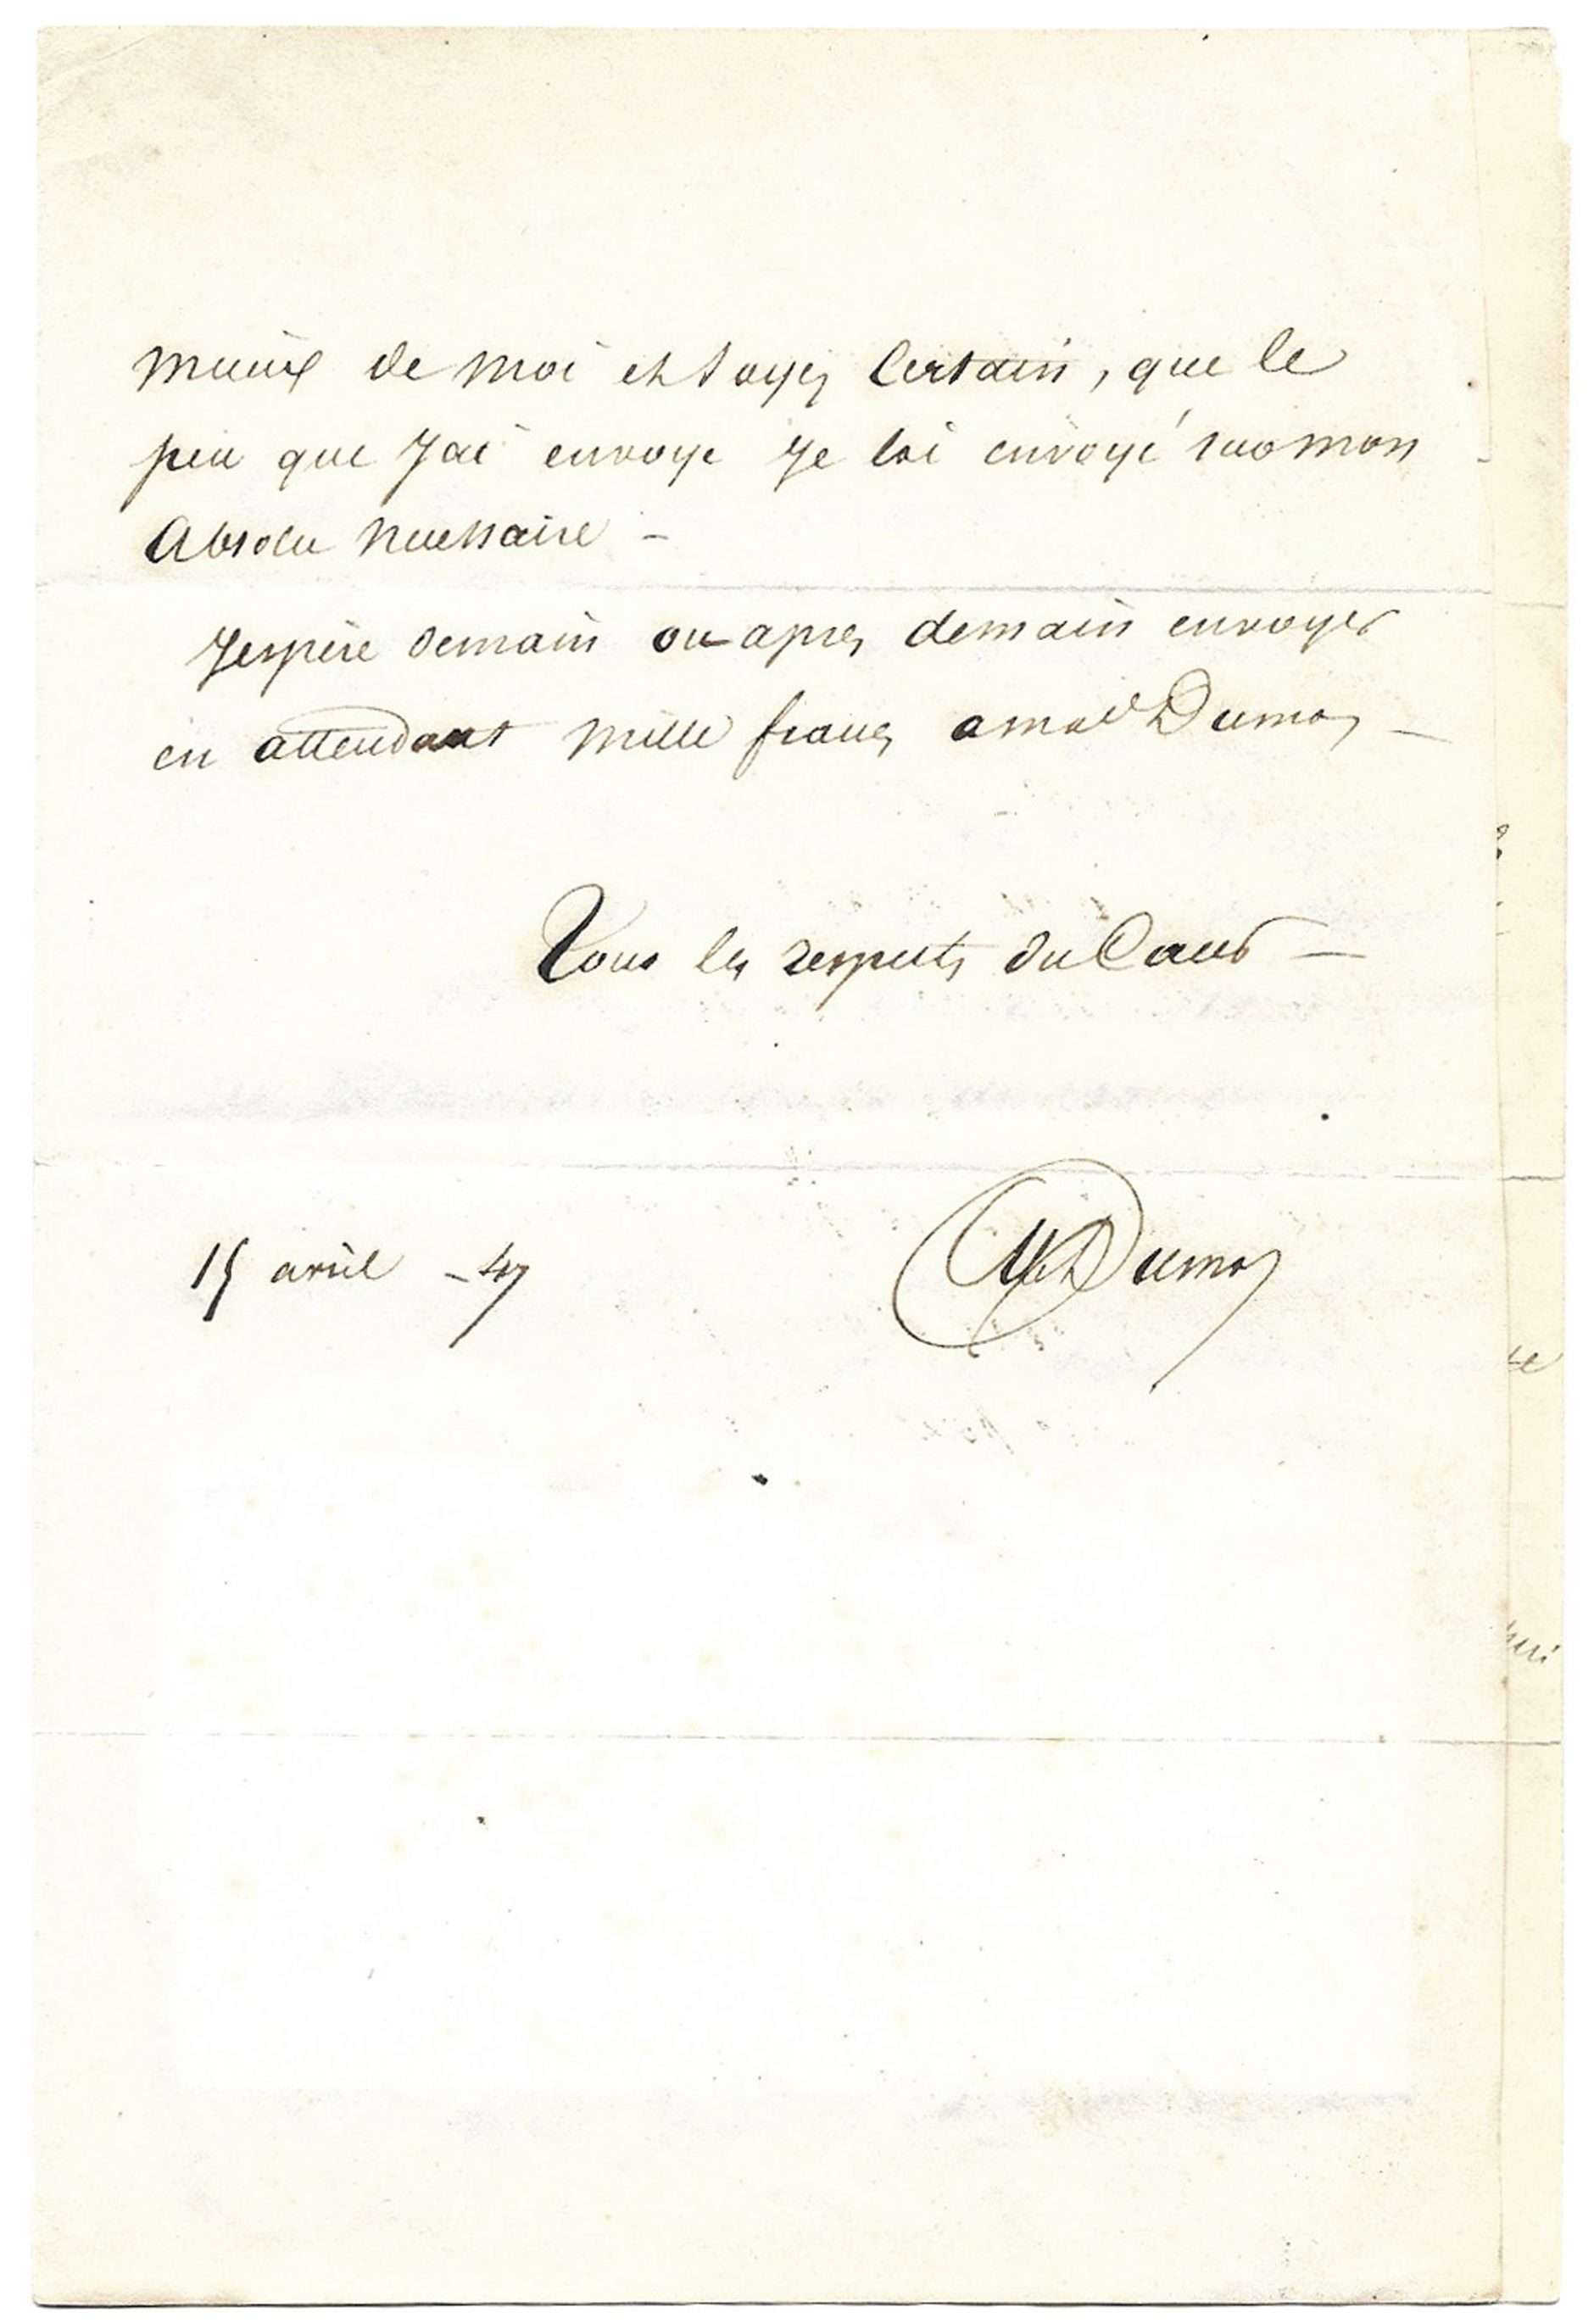 mieux de moi et soyez certain, que le
peu que j'ai envoyé je l'ai envoyé sur mon
absolu necessaire –
J'espère demain ou apres demain envoyer
en attendant mille francs a mad Dumas –
Tous les respects du Cœur –
15 avril – 47
Alex Dumas